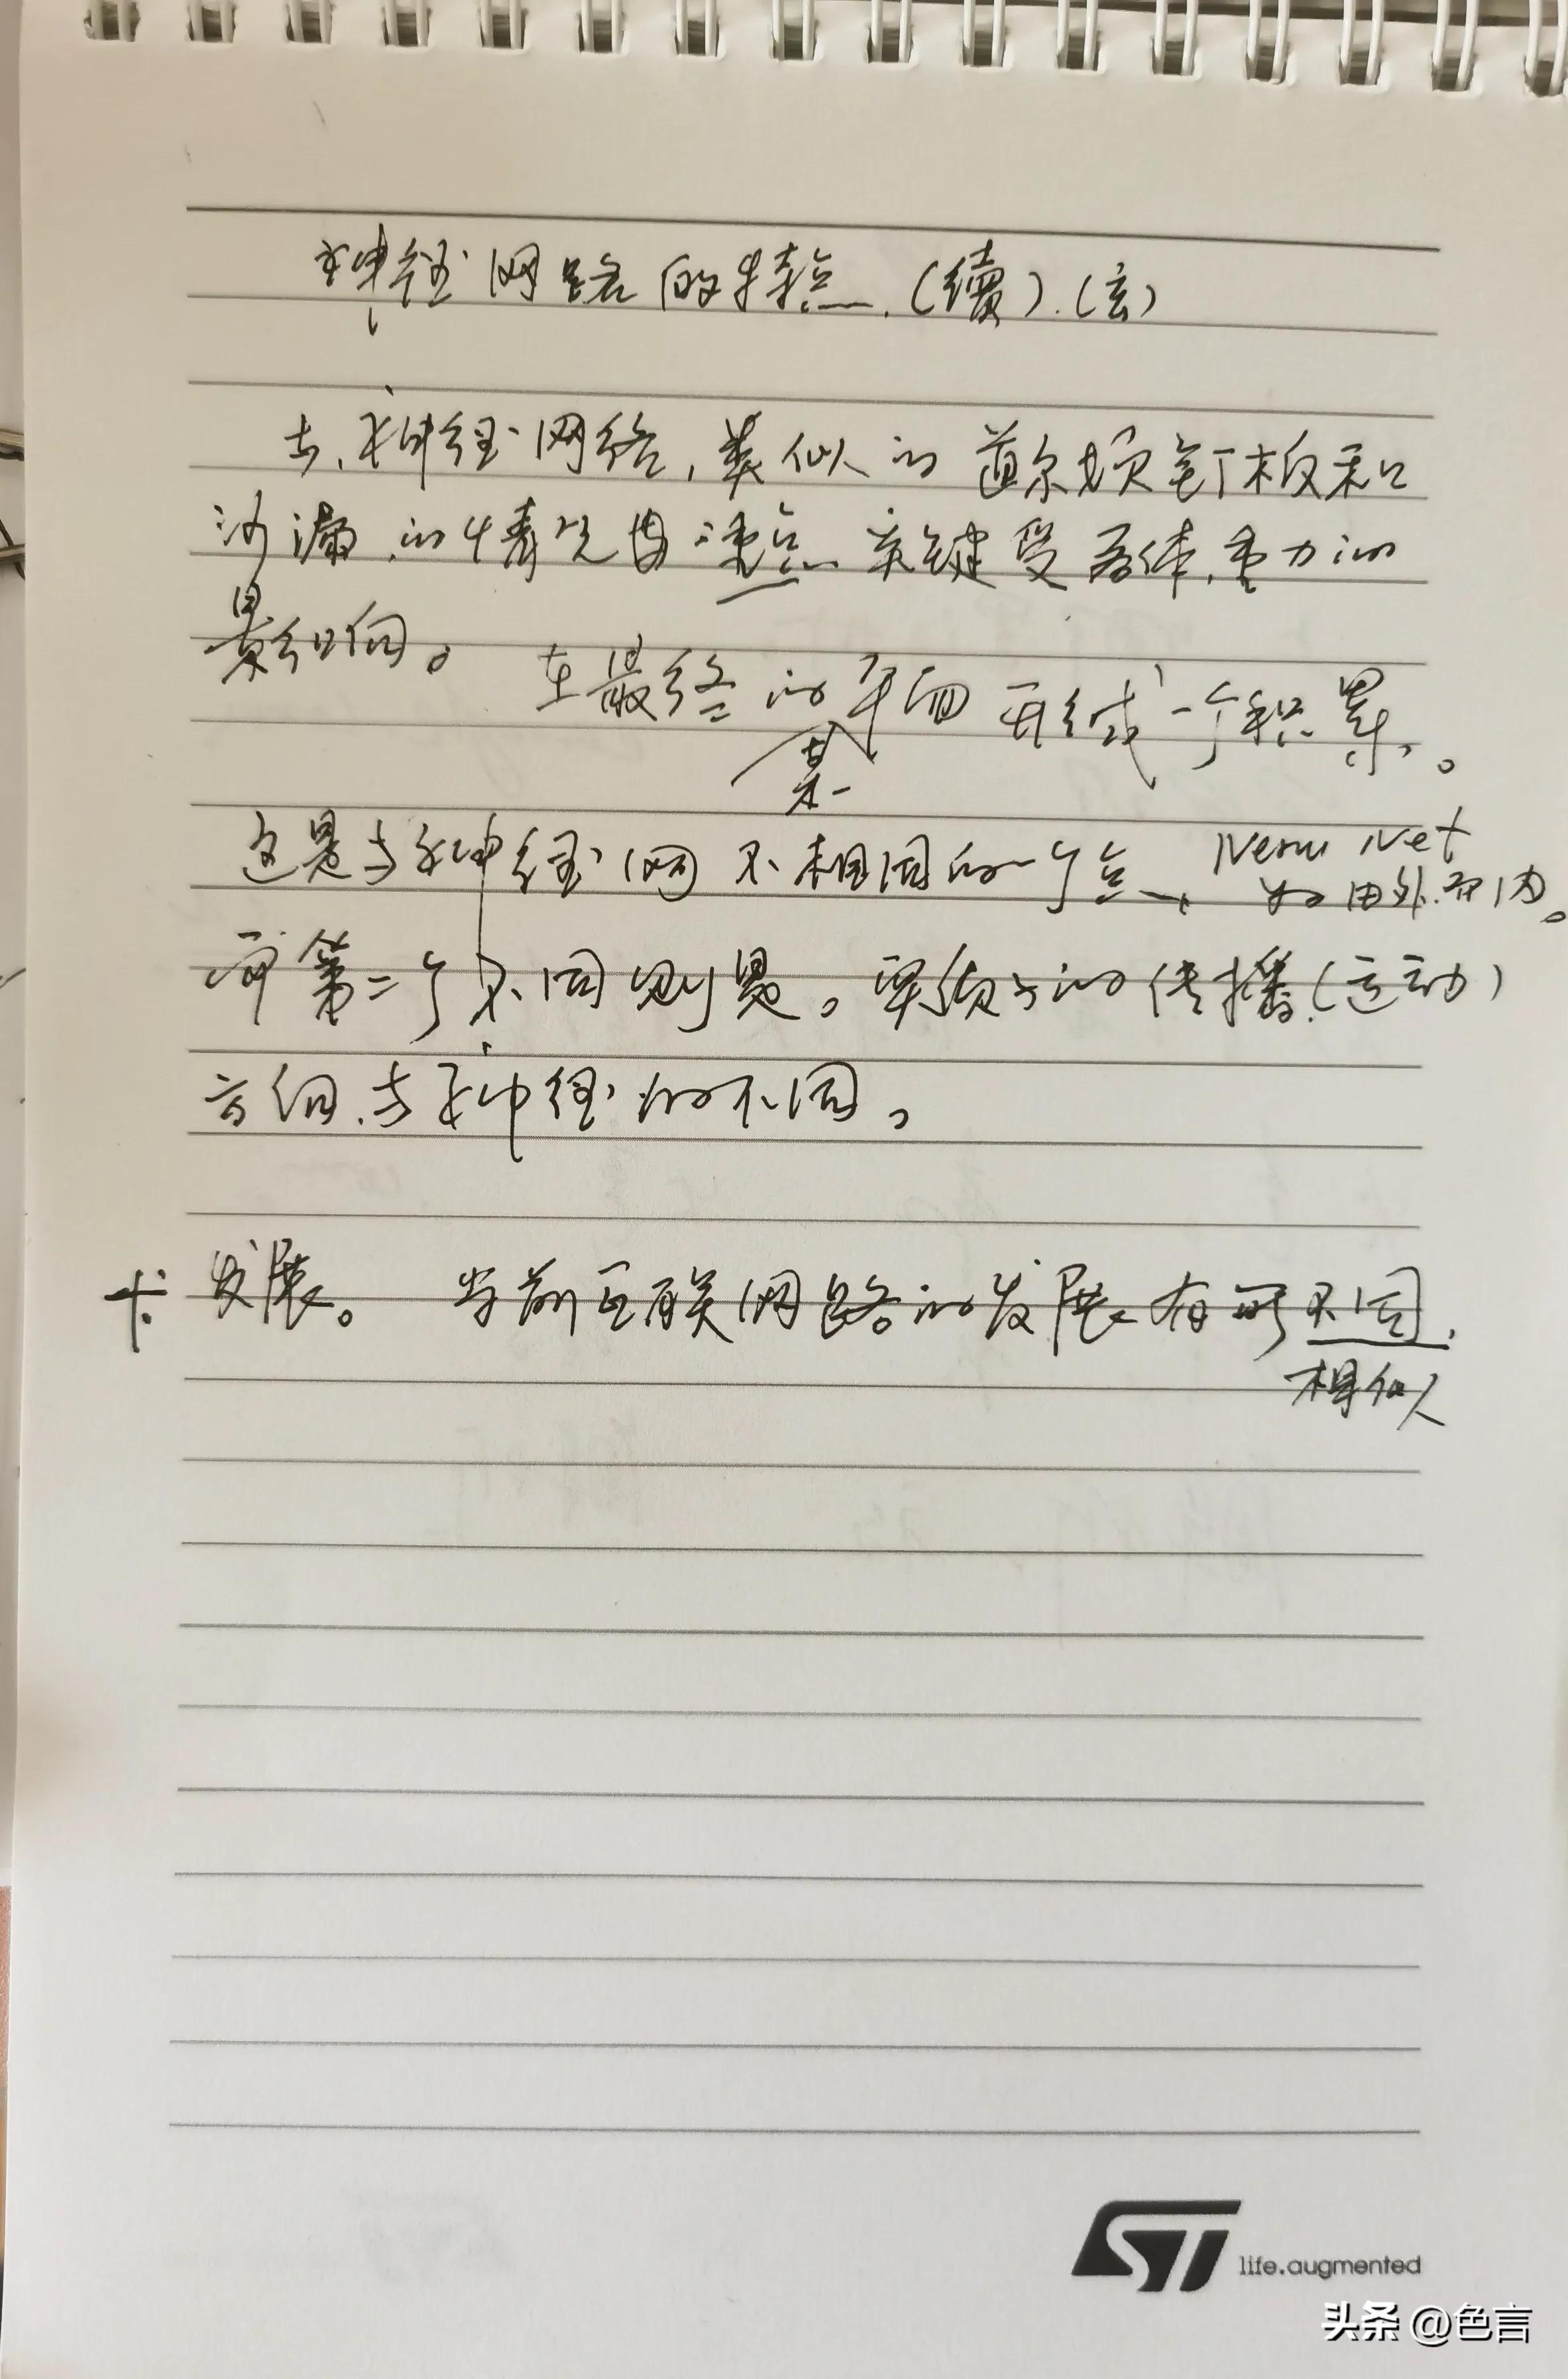 神经网路的特点.(續).(玄)
与.神经网络,类似的道尔顿钉板和
沙漏.的情况因 重点 关键受 个体.重力的
影响。 在最终的平面再形成一个积累。
某一
这是与神经网不相同的一个点、 Neru Net
如由外.而内。
而第二个不同则是。 的传播(运动)
方向.与神经的不同。
发展。 当前互联网路的发展有所不同.
相似
life.augmented
头条 @色言